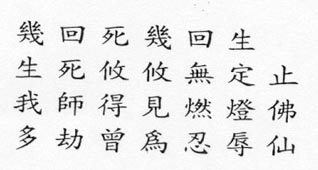 幾回死幾回生
生死攸攸無定止
我師得見燃燈佛
多劫曾爲忍辱仙